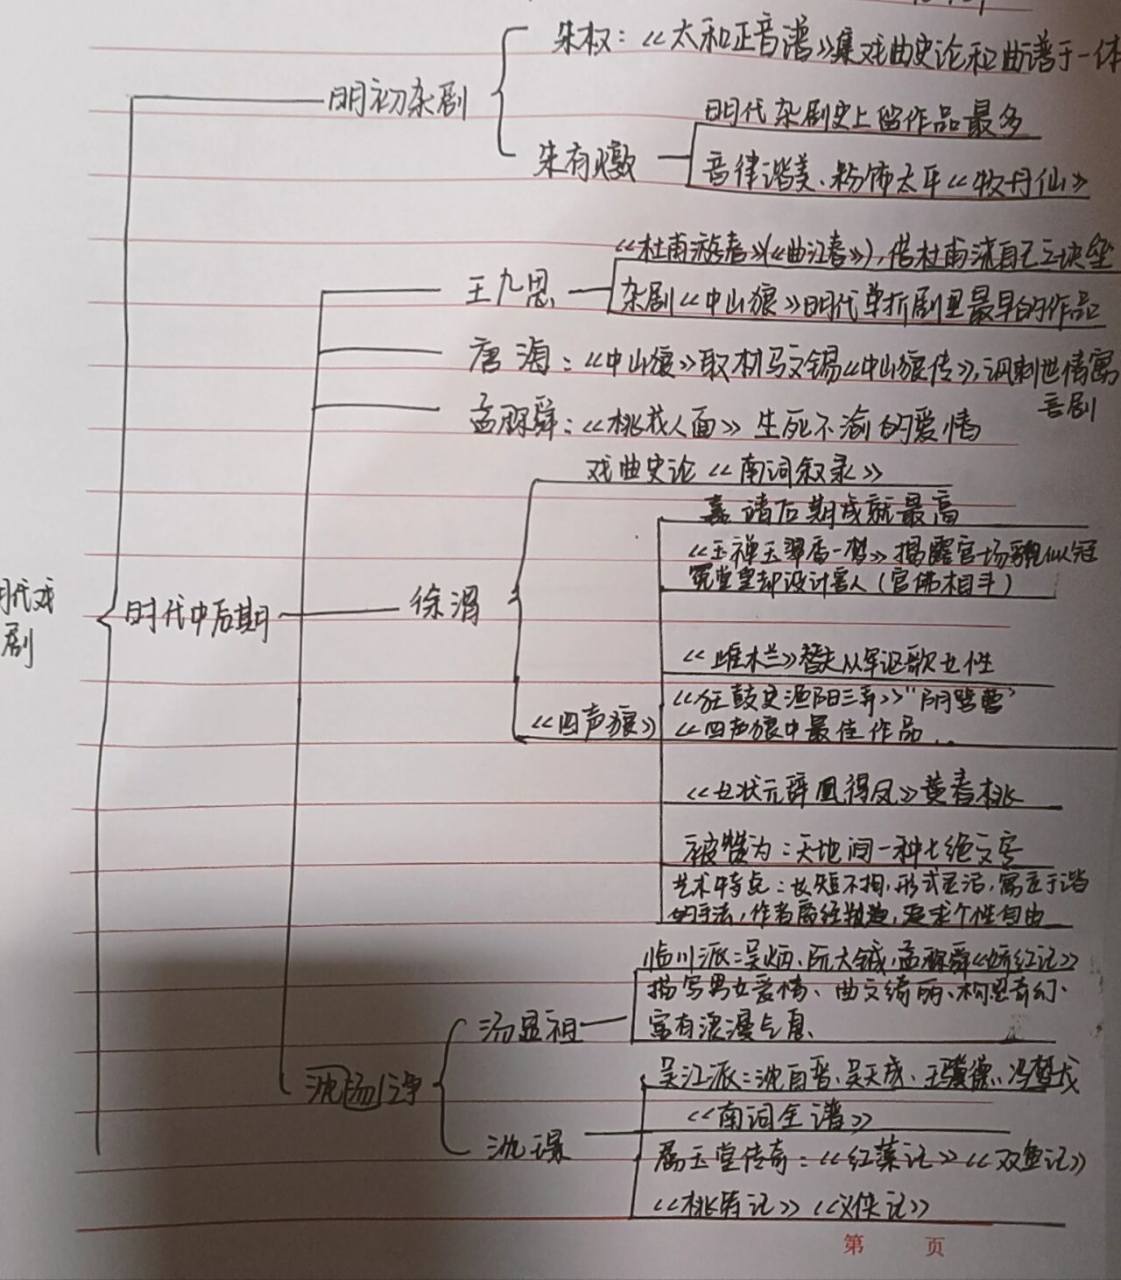 朱权：《太和正音谱》集戏曲史论和曲谱于一体
明初杂剧
明代杂剧史上留作品最多
朱有燉
音律谐美、粉饰太平《牡丹仙》
《杜甫游春》(《曲江春》)，借杜甫浇自己之块垒
王九思
杂剧《中山狼》明代单折剧里最早的作品
唐海：《中山狼》取材马文锡《中山狼传》，讽刺世情寓
言剧
孟称舜：《桃花人面》生死不渝的爱情
戏曲史论《南词叙录》
嘉靖后期成就最高
《玉禅玉翠香一梦》揭露官场貌似冠
冕堂皇却设计害人（官佛相斗）
代戏
剧
时代中后期
徐渭
《雌木兰》替父从军讴歌女性
《狂鼓史渔阳三弄》"阴骂曹"
《四声猿》
《四声猿中最佳作品
《女状元辞凰得凤》黄春桃
被誉为：天地间一种七绝文字
艺术特点：长短不拘，形式灵活，寓庄于谐
的手法，作者离经叛道，要求个性自由
临川派：吴炳、阮大铖、孟称舜《娇红记》
描写男女爱情、曲文绮丽、构思奇幻、
富有浪漫气息、
汤显祖
沈汤之争
吴江派：沈自晋、吴天成、王骥德、冯梦龙
《南词全谱》
沈璟
属玉堂传奇：《红蕖记》《双鱼记》
《桃符记》《义侠记》
第 页